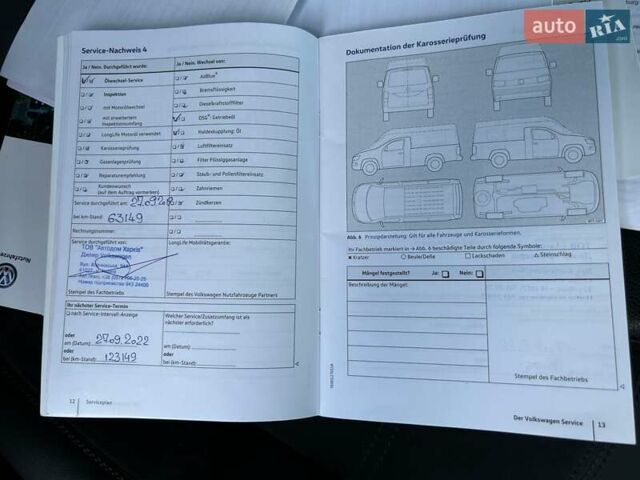 auto RIA .com
Service-Nachweis 4
Ja / Nein. Durchgeführt wurde:
Ja / Nein. Wechsel von:
Ölwechsel-Service
AdBlue®
Inspektion
Bremsflüssigkeit
mit Motorölwechsel
Dieselkraftstofffilter
mit erweitertem Inspektionsumfang
DSG®-Getriebeöl
LongLife Motoröl verwendet
Haldexkupplung: Öl
Karosserieprüfung
Luftfiltereinsatz
Gasanlagenprüfung
Filter Flüssiggasanlage
Reparaturempfehlung
Staub- und Pollenfiltereinsatz
Kundenwunsch
(auf dem Auftrag vermerken)
Zahnriemen
Service durchgeführt am: 27.09.20
Zündkerzen
bei km-Stand: 63149
Rechnungsnummer:
Service durchgeführt von:
LongLife Mobilitätsgarantie:
ТОВ "Автодом Харків"
Дилер Volkswagen
Stempel des Fachbetriebs
Stempel des Volkswagen Nutzfahrzeuge Partners
Ihr nächster Service-Termin
nach Service-Intervall-Anzeige
Welcher Service/Zusatzumfang ist als nächster erforderlich?
oder
am (Datum): 27.09.2022
oder
bei (km-Stand): 123149
oder
am (Datum):
oder
bei (km-Stand):
12 Serviceplan
Dokumentation der Karosserieprüfung
Abb. 6 Prinzipdarstellung: Gilt für alle Fahrzeuge und Karosserieformen.
Ihr Fachbetrieb markiert in → Abb. 6 beschädigte Teile durch folgende Symbole:
× Kratzer ○ Beule/Delle □ Lackschaden △ Steinschlag
Mängel festgestellt? Ja: Nein:
Beschreibung der Mängel:
Stempel des Fachbetriebs
Der Volkswagen Service 13
Nutzfahrzeuge